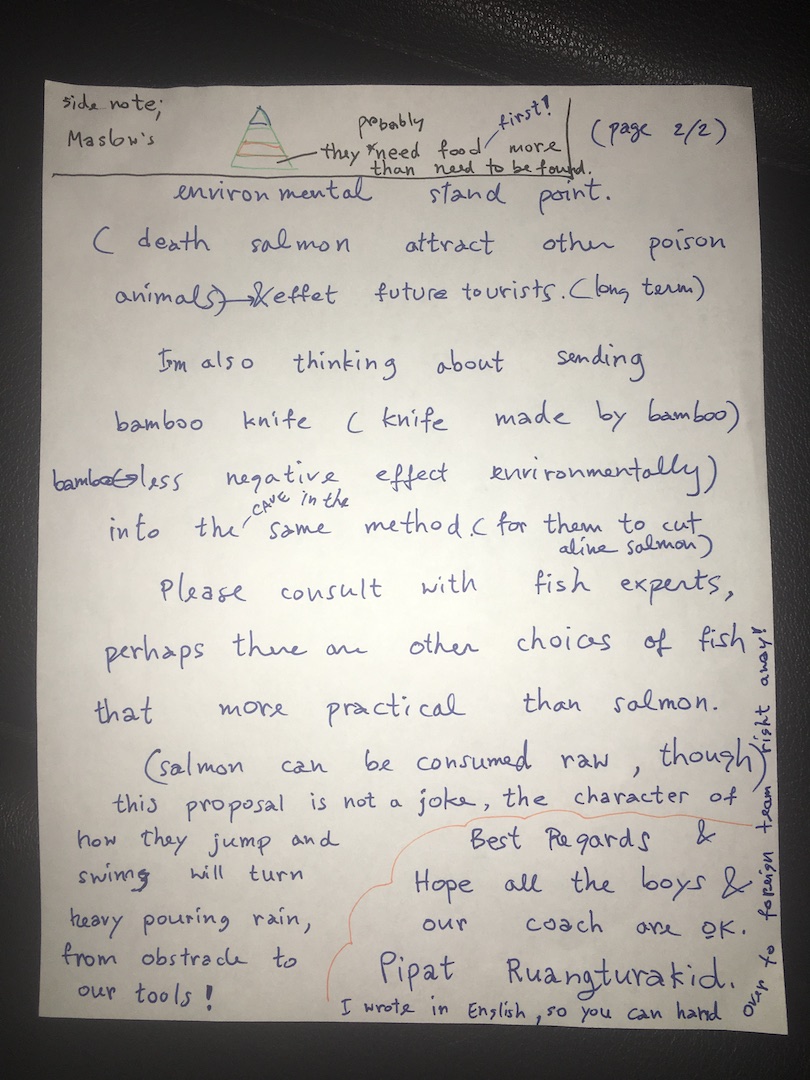 side note;
Maslow's
probably first!
they *need food more
than need to be found.
(page 2/2)
environmental stand point.
( death salmon attract other poison
animals) → & effet future tourists. (long term)
I'm also thinking about sending
bamboo knife ( knife made by bamboo)
less negative effect environmentally)
cave in the
into the same method. ( for them to cut
aline salmon)
Please consult with fish experts,
perhaps there are other choices of fish
that more practical than salmon.
(salmon can be consumed raw, though)
this proposal is not a joke, the character of
how they jump and
swimg will turn
heavy pouring rain,
from obstracle to
our tools!
Best Regards &
Hope all the boys &
our coach are OK.
Pipat Ruangturakid.
I wrote in English, so you can hand
over to foreign team right away!